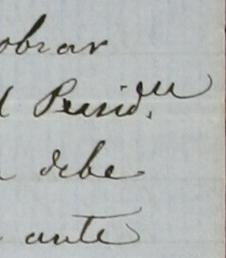 obrar
l Presid.eu
debe
ante